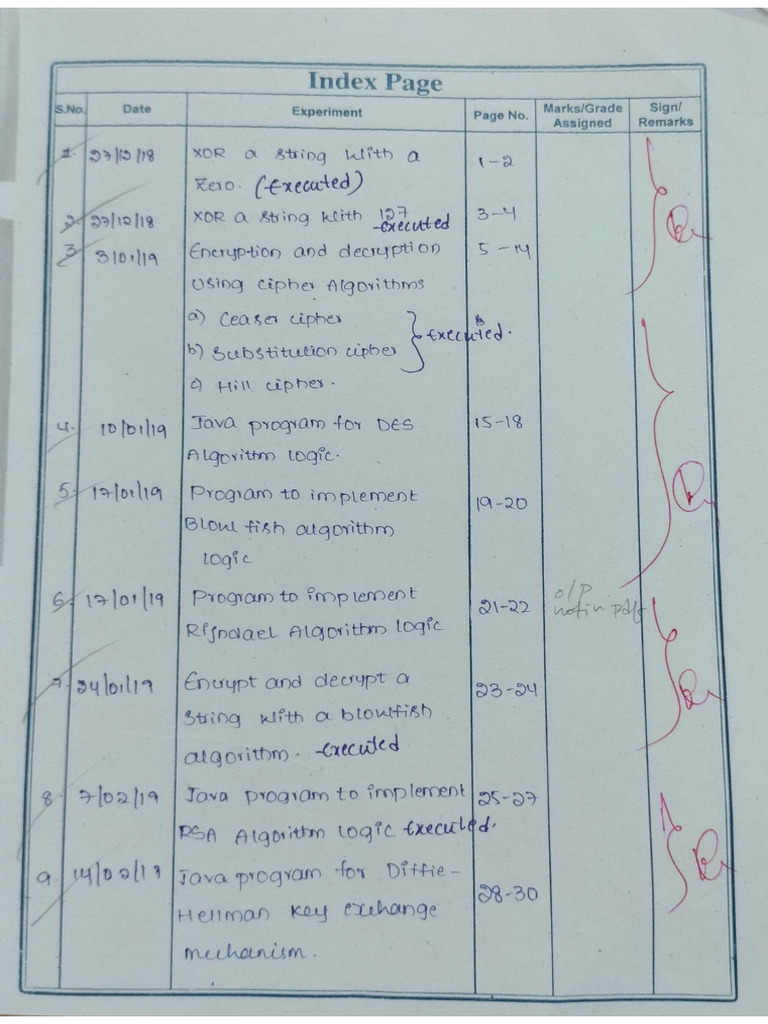 Index Page
S.No. Date Experiment Page No. Marks/Grade Assigned Sign/ Remarks
1. 27/12/18 XOR a string with a 1-2
zero. (Executed)
2. 27/12/18 XOR a string with 127 3-4
executed
3. 3/01/19 Encryption and decryption 5-14
using cipher Algorithms
a) Ceaser cipher
b) Substitution cipher } Executed.
c) Hill cipher.
4. 10/01/19 Java program for DES 15-18
Algorithm logic.
5. 17/01/19 Program to implement 19-20
Blow fish algorithm
logic
6. 17/01/19 Program to implement 21-22 o/p
Rijndael Algorithm logic not in
7. 24/01/19 Encrypt and decrypt a 23-24
string with a blowfish
algorithm. executed
8. 7/02/19 Java program to implement 25-27
RSA Algorithm logic Executed.
9. 14/02/19 Java program for Diffie- 28-30
Hellman key exchange
mechanism.